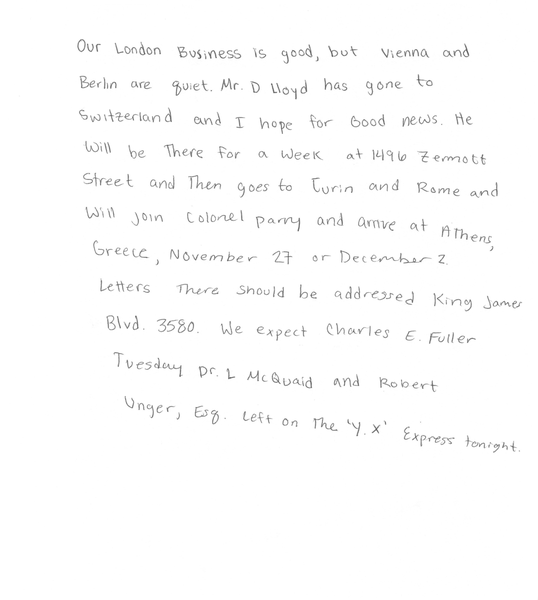 Our London Business is good, but Vienna and
Berlin are quiet. Mr. D Lloyd has gone to
Switzerland and I hope for Good news. He
Will be There for a Week at 1496 Zermott
Street and Then goes to Turin and Rome and
Will join Colonel parry and arrive at Athens,
Greece, November 27 or December 2.
Letters There should be addressed King James
Blvd. 3580. We expect Charles E. Fuller
Tuesday Dr. L McQuaid and Robert
Unger, Esq. Left on The 'Y.X' Express tonight.